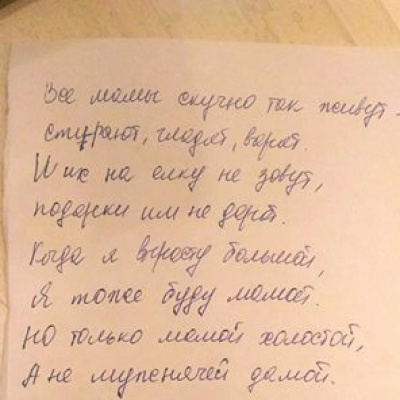 Все мамы скучно так живут -
стирают, гладят, варят.
И их на елку не зовут,
подарки им не дарят.
Когда я вырасту большой,
Я тоже буду мамой.
НО только мамой холостой,
А не мупсенячей дамой.